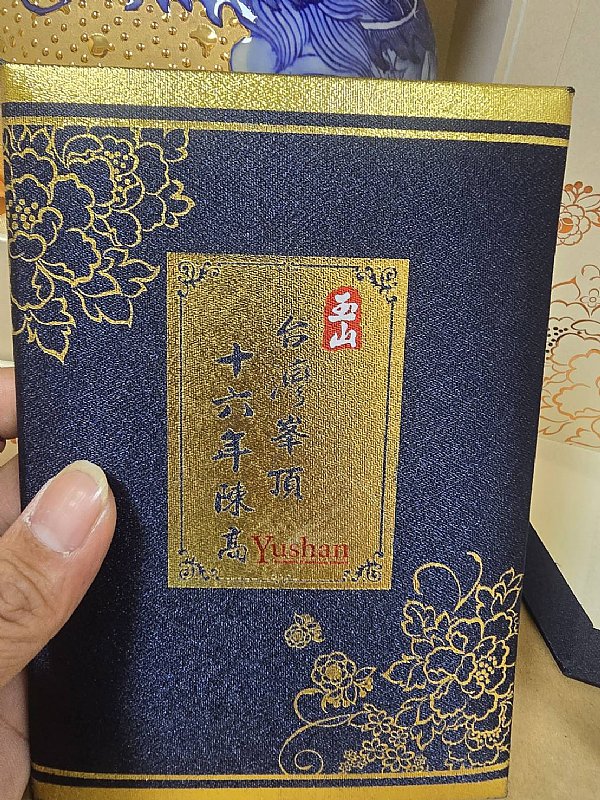 玉山
台灣峯頂
十六年陳高
Yushan